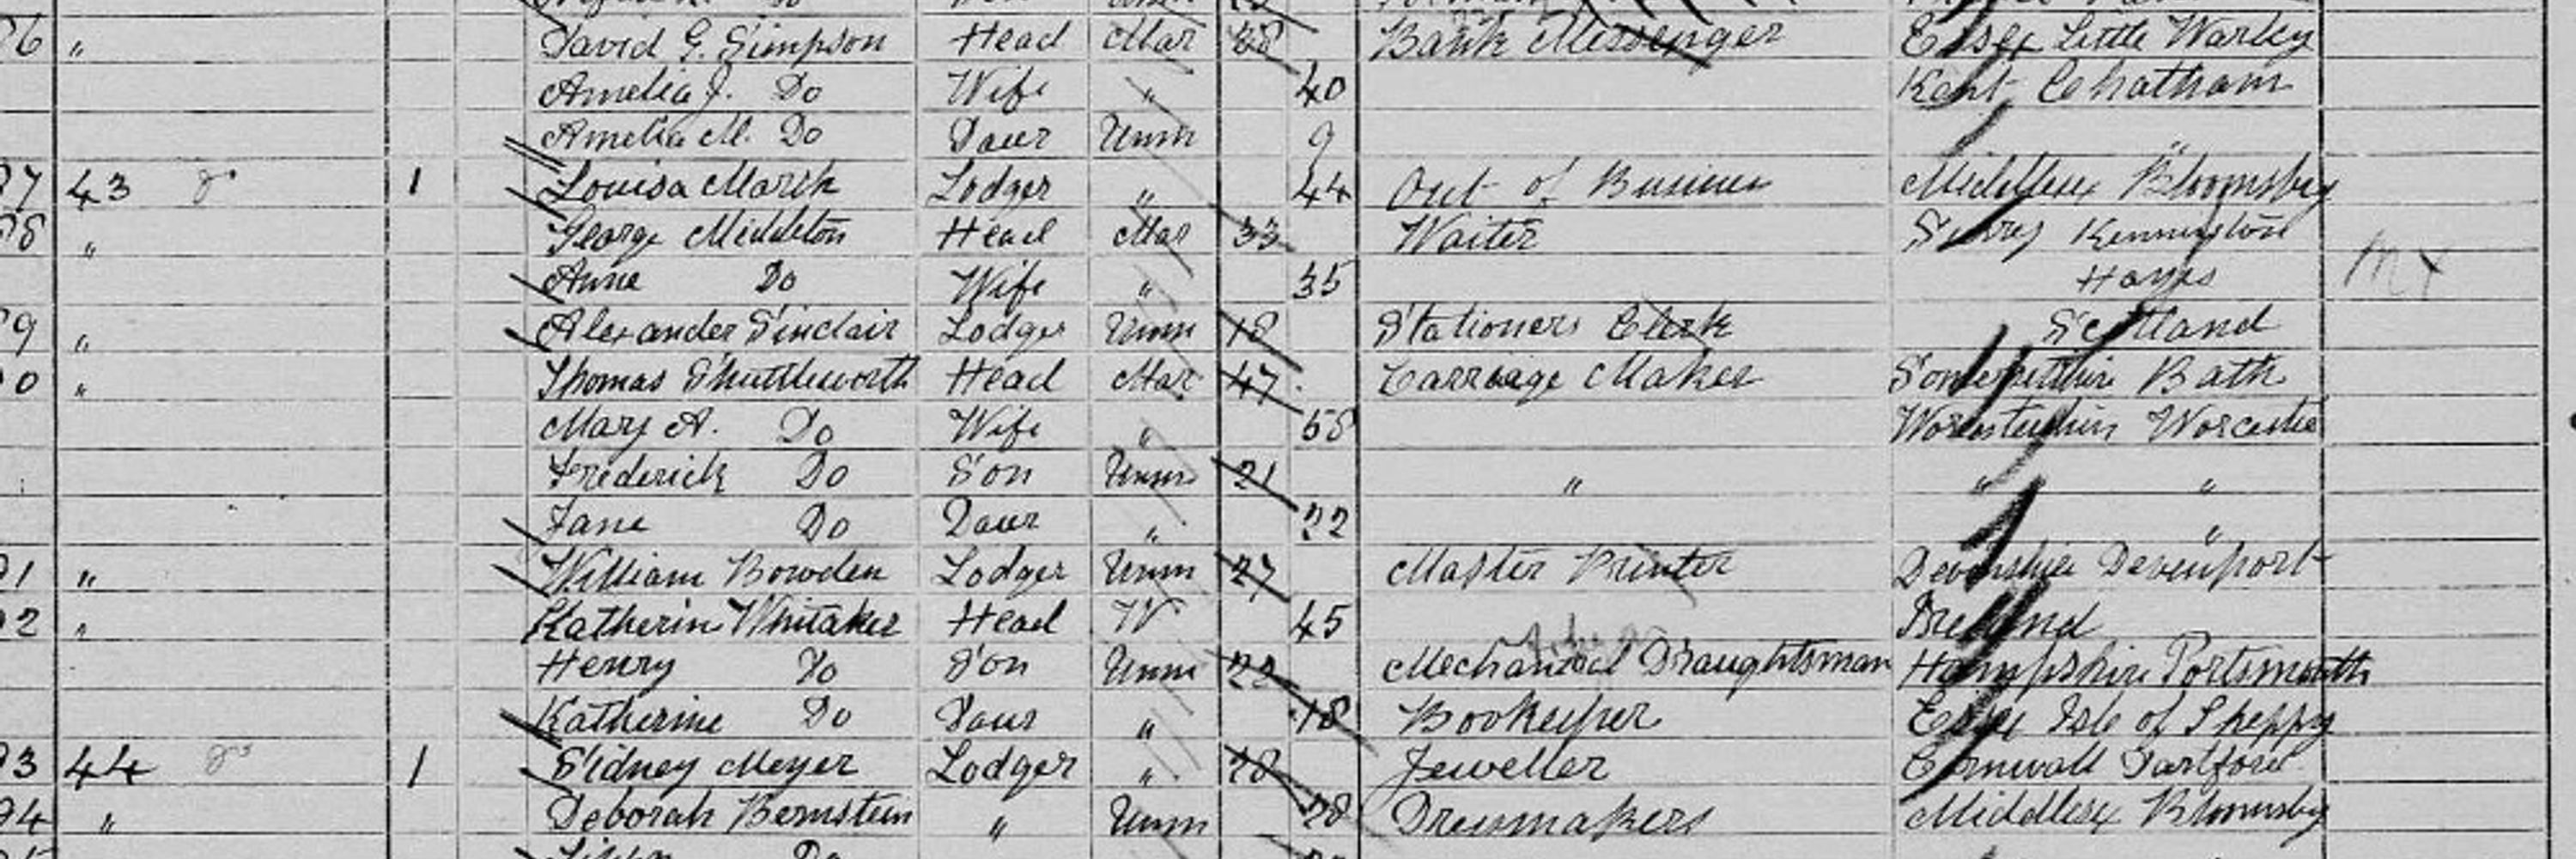 86 " David G. Simpson Head Mar 38 Bank Messenger Essex Little Warley
Amelia J. Do Wife " 40 Kent Chatham
Amelia M. Do Daur Unm 9 "
87 43 do 1 Louisa Marsh Lodger " 44 Out of Business Middlesex Bloomsbury
88 " George Middleton Head Mar 33 Waiter Surrey Kennington
Anne Do Wife " 35 Hayes
89 " Alexander Sinclair Lodger Unm 18 Stationers Clerk Scotland
90 " Thomas Shuttleworth Head Mar 47 Carriage Maker Somersetshire Bath
Mary A. Do Wife " 58 Worcestershire Worcester
Frederick Do Son Unm 21 " " "
Jane Do Daur " 22 "
91 " William Bowden Lodger Unm 27 Master Printer Devonshire Devenport
92 " Katherin Whitaker Head W 45 Ireland
Henry Do Son Unm 22 Mechanical Draughtsman Hampshire Portsmouth
Katherine Do Daur " 18 Bookeeper Essex Isle of Sheppy
93 44 do 1 Sidney Meyer Lodger " 28 Jeweller Cornwall Dartford
94 " Deborah Bernstein " Unm 28 Dressmakers Middlesex Bloomsby
Do